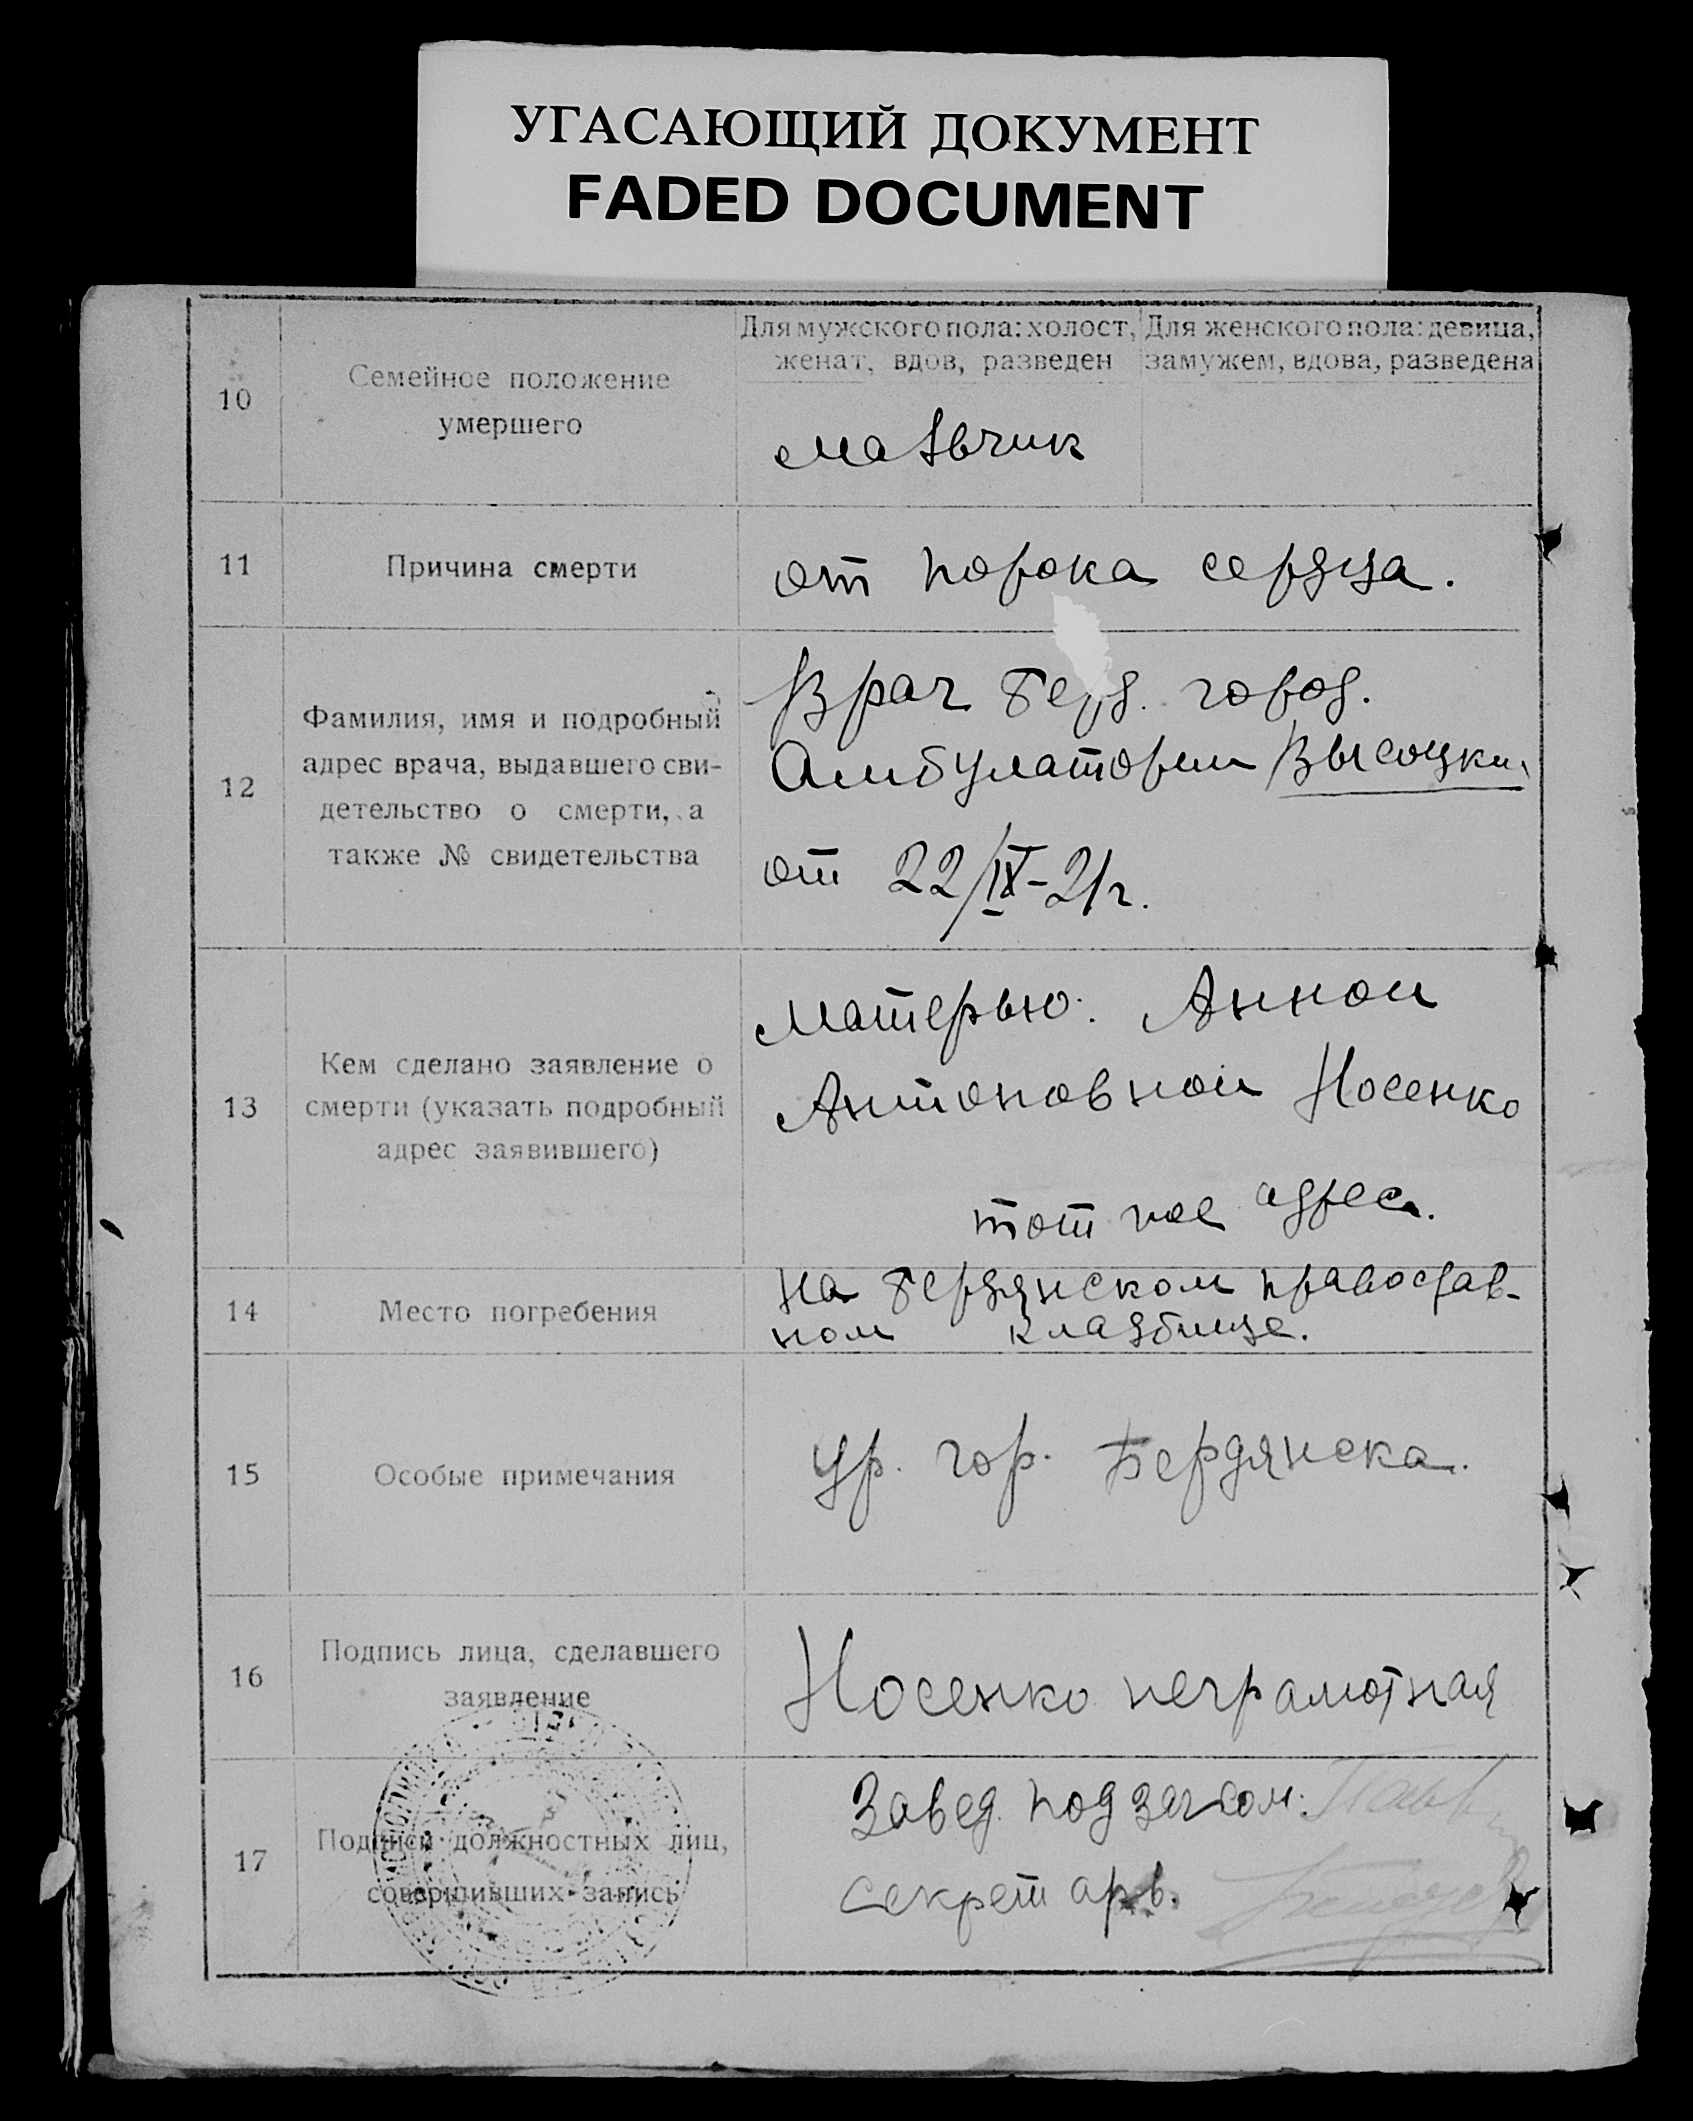 УГАСАЮЩИЙ ДОКУМЕНТ
FADED DOCUMENT
Для мужского пола: холост, Для женского пола: девица,
женат, вдов, разведен замужем, вдова, разведена
10
Семейное положение
умершего
мальчик
11
Причина смерти
от порока сердца.
12
Фамилия, имя и подробный
адрес врача, выдавшего сви-
детельство о смерти, а
также № свидетельства
Врач Берд. город.
Амбулатории Высоцкий
от 22/IX-21г.
13
Кем сделано заявление о
смерти (указать подробный
адрес заявившего)
Матерью: Анной
Антоновной Носенко
тот же адрес.
14
Место погребения
на Бердянском православ-
ном кладбище.
15
Особые примечания
Ур. гор. Бердянска.
16
Подпись лица, сделавшего
заявление
Носенко неграмотная
17
Подписи должностных лиц,
совершивших запись
Завед. подзагсом:
Секретарь.